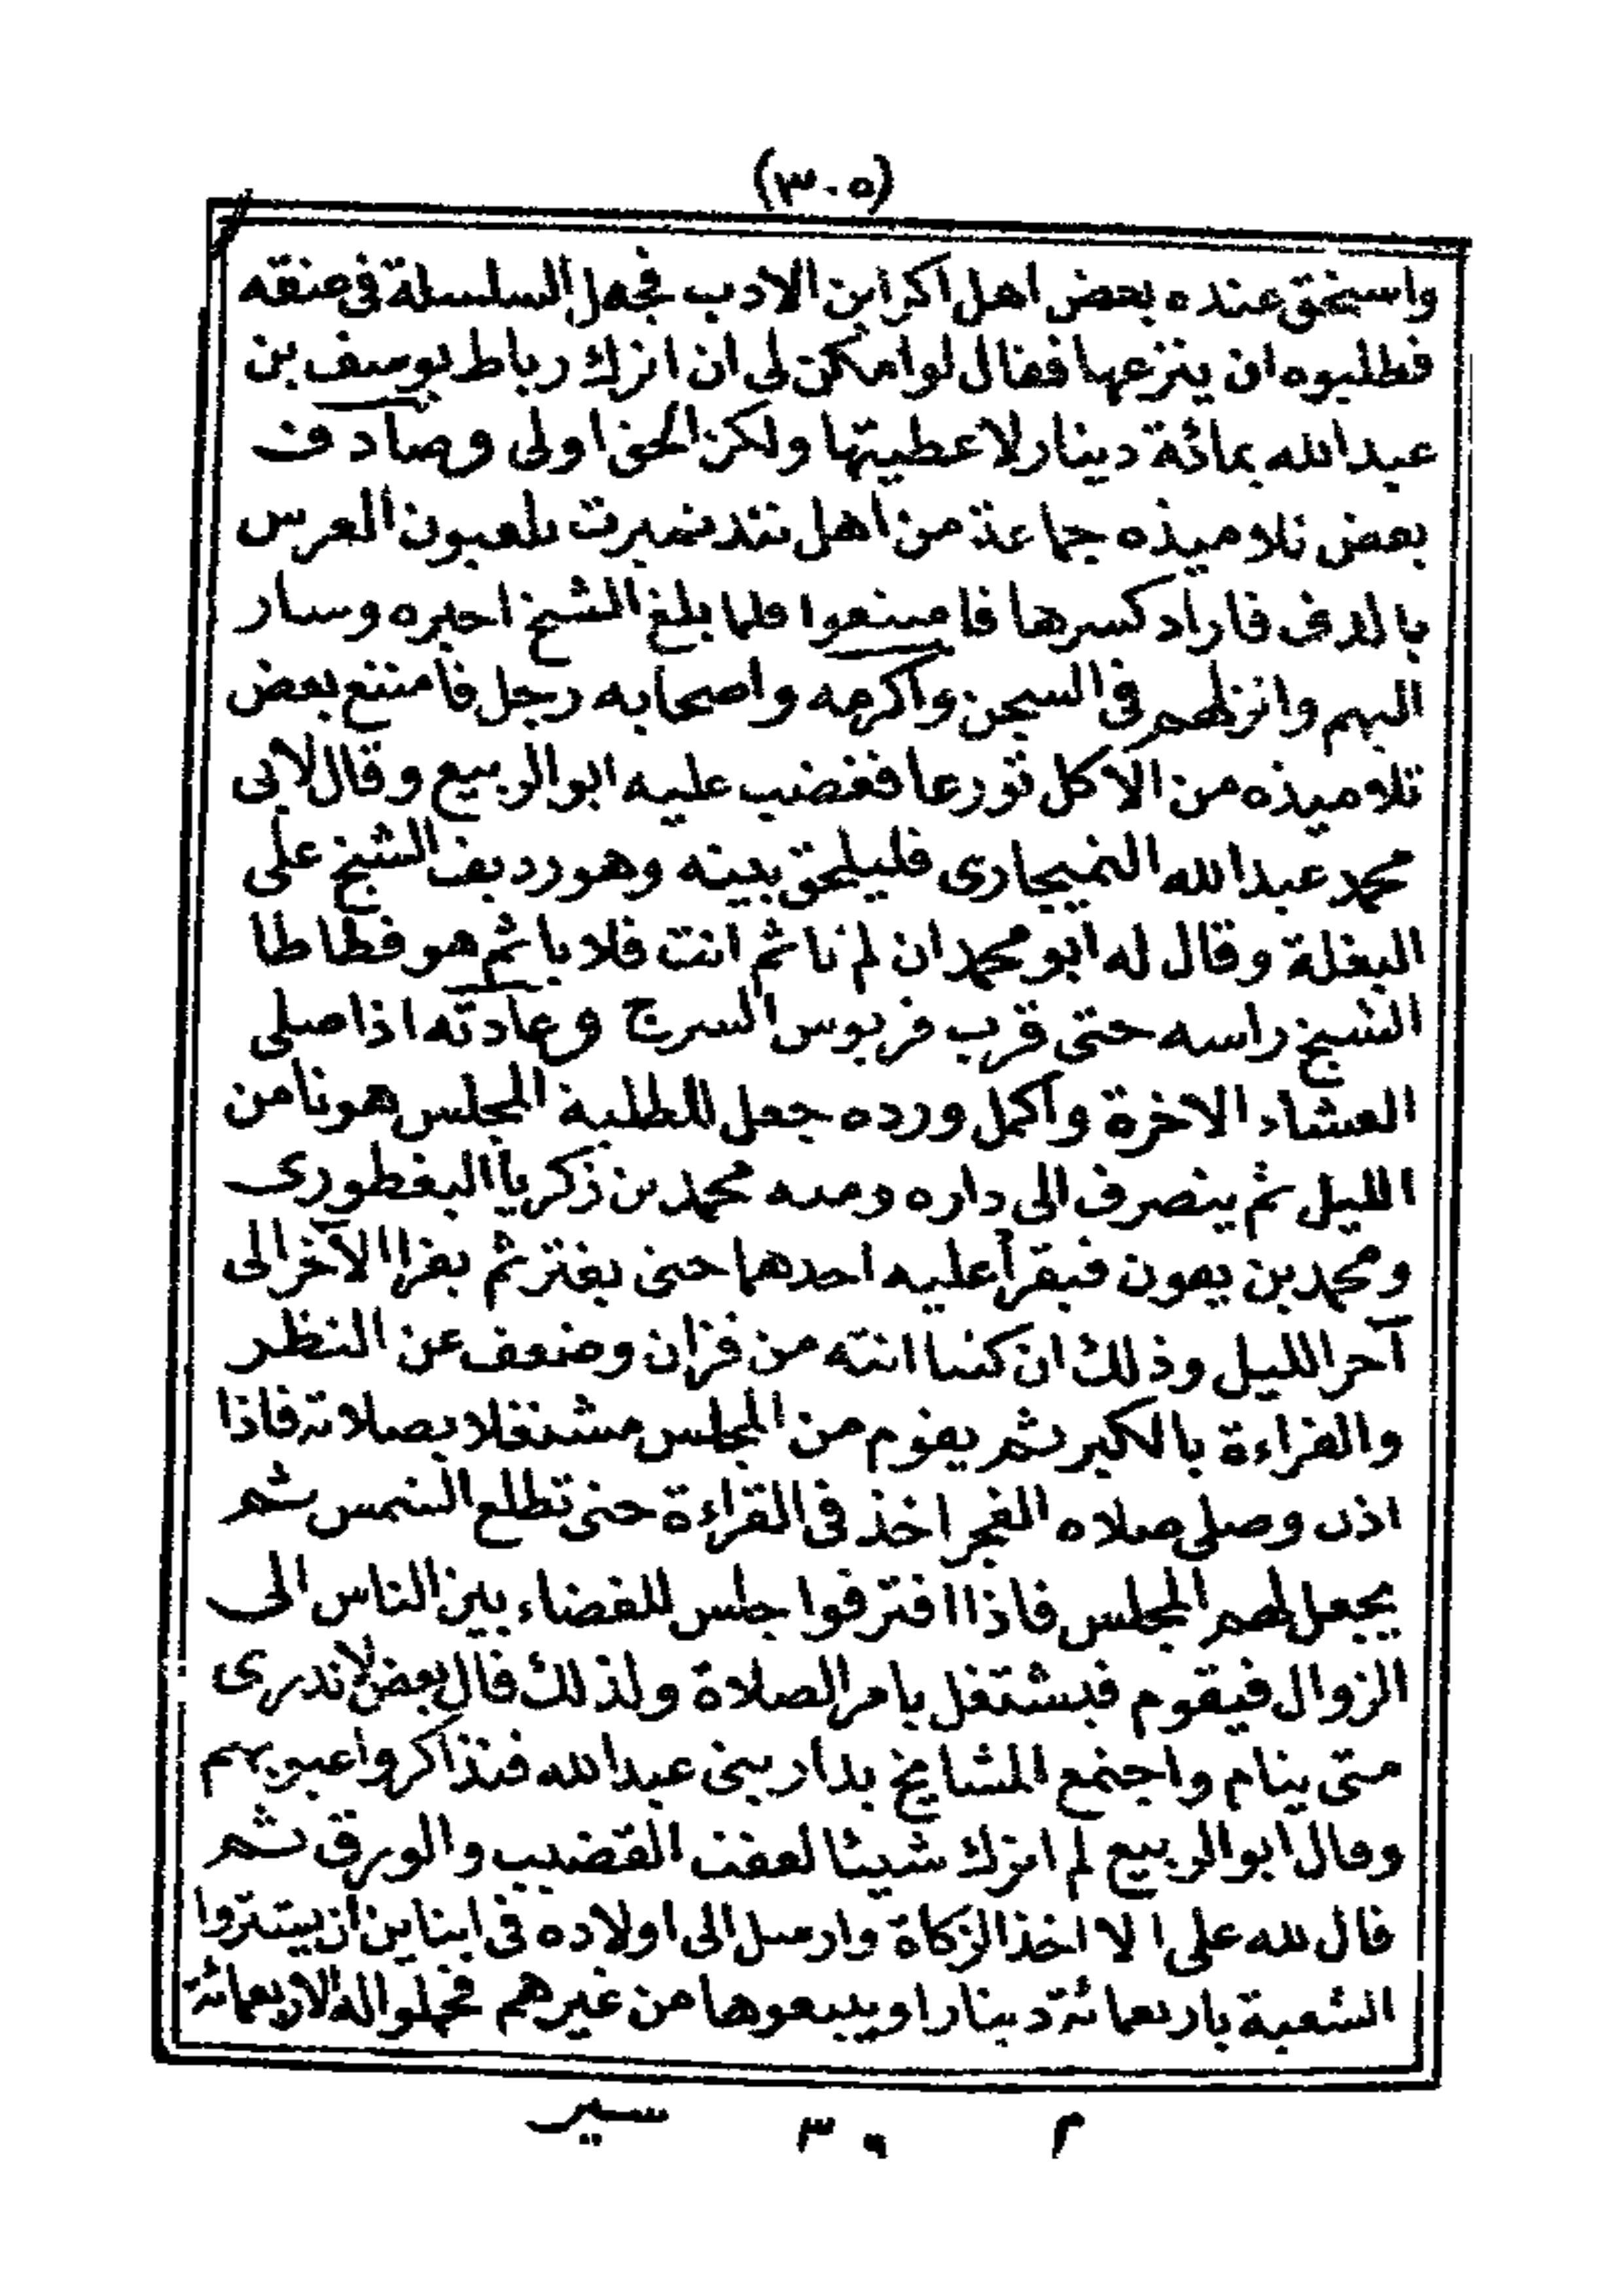 (٣٠٥)
واستحق عنده بعض اهل اكراين الادب فجعل السلسلة في عنقه
فطلبوه ان ينزعها فقال لو امكن لى ان اترك رباط يوسف بن
عبد الله بمائة دينار لاعطيتها ولكن الحق اولى وصادف
بعض تلاميذه جماعة من اهل تندنميرت يلعبون العرس
بالدف فاراد كسرها فامتنعوا فلما بلغ الشيخ اخبره وسار
اليهم وانزلهم فى السجن واكرمه واصحابه رجل فامتنع بعض
تلاميذه من الاكل تورعا فغضب عليه ابو الربيع وقال لابى
محمد عبد الله النميجارى فليلحق بيته وهو رديف الشيخ على
البغلة وقال له ابو محمد ان لم تاثم انت فلا ياثم هو فطاطا
الشيخ راسه حتى قرب قربوس السرج وعادته اذا صلى
العشاء الاخرة واكمل ورده جعل للطلبة المجلس هونا من
الليل ثم ينصرف الى داره ومعه محمد بن زكرياا البغطورى
ومحمد بن يعون فيقرأ عليه احدهما حتى يفتر ثم يقرا الآخر الى
آخر الليل وذلك ان كتبا اتته من فزان وضعف عن النظر
والقراءة بالكبر ثم يقوم من المجلس مشتغلا بصلاته فاذا
اذن وصلى صلاه الفجر اخذ فى القراءة حتى تطلع الشمس ثم
يجعل لهم المجلس فاذا افترقوا جلس للقضاء بين الناس الى
الزوال فيقوم فيشتغل بامر الصلاة ولذلك قال بعض لاندرى
متى ينام واجتمع المشايخ بدار بنى عبد الله فتذاكروا عيوبهم
وقال ابو الربيع لم اترك شيئا لعفت القضيب والورق ثم
قال لله على الا اخذ الزكاة وارسل الى اولاده فى ابناين ان يشتروا
الشعبة باربعمائة دينار او يبيعوها من غيرهم فحملوا اله الاربعمائة
م ٣٠ سير